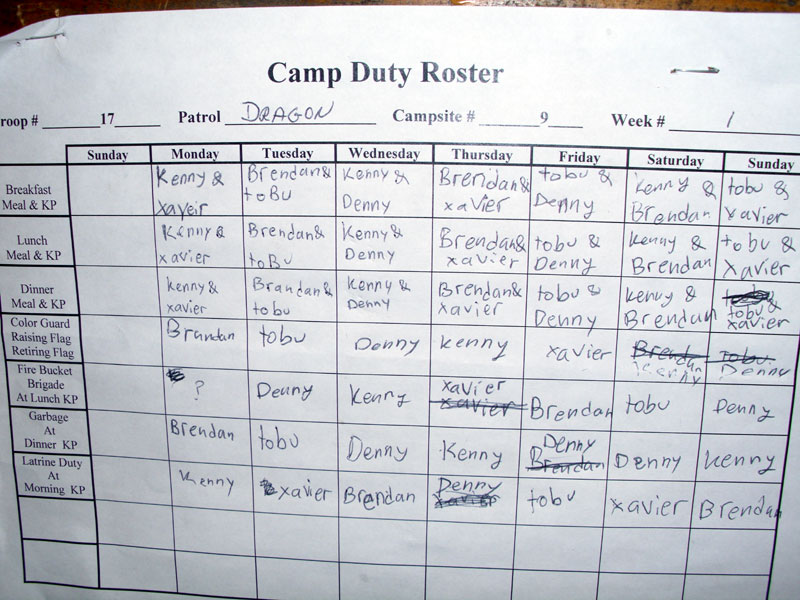 Camp Duty Roster
roop # 17 Patrol DRAGON Campsite # 9 Week # 1
Sunday Monday Tuesday Wednesday Thursday Friday Saturday Sunday
Breakfast Kenny & Brendan& Kenny & Brendan& tobu & Kenny & tobu &
Meal & KP xaveir toBu Denny xavier Denny Brendan xavier
Lunch Kenny & Brendan& Kenny & Brendan& tobu & Kenny & tobu &
Meal & KP xavier toBu Denny xavier Denny Brendan Xavier
Dinner Kenny & Brandan& Kenny & Brendan& tobu & Kenny &
Meal & KP xavier tobu Denny xavier Denny Brendan tobu &
xavier
Color Guard Brandan tobu Denny Kenny xavier Brendan tobu
Raising Flag Kenny Denny
Retiring Flag
Fire Bucket ? Denny Kenny xavier Brendan tobu Denny
Brigade xavier
At Lunch KP
Garbage Brendan tobu Denny Kenny Denny Denny Kenny
At Brendan
Dinner KP
Latrine Duty Kenny xavier Brendan Denny tobu xavier Brendan
At xavier
Morning KP